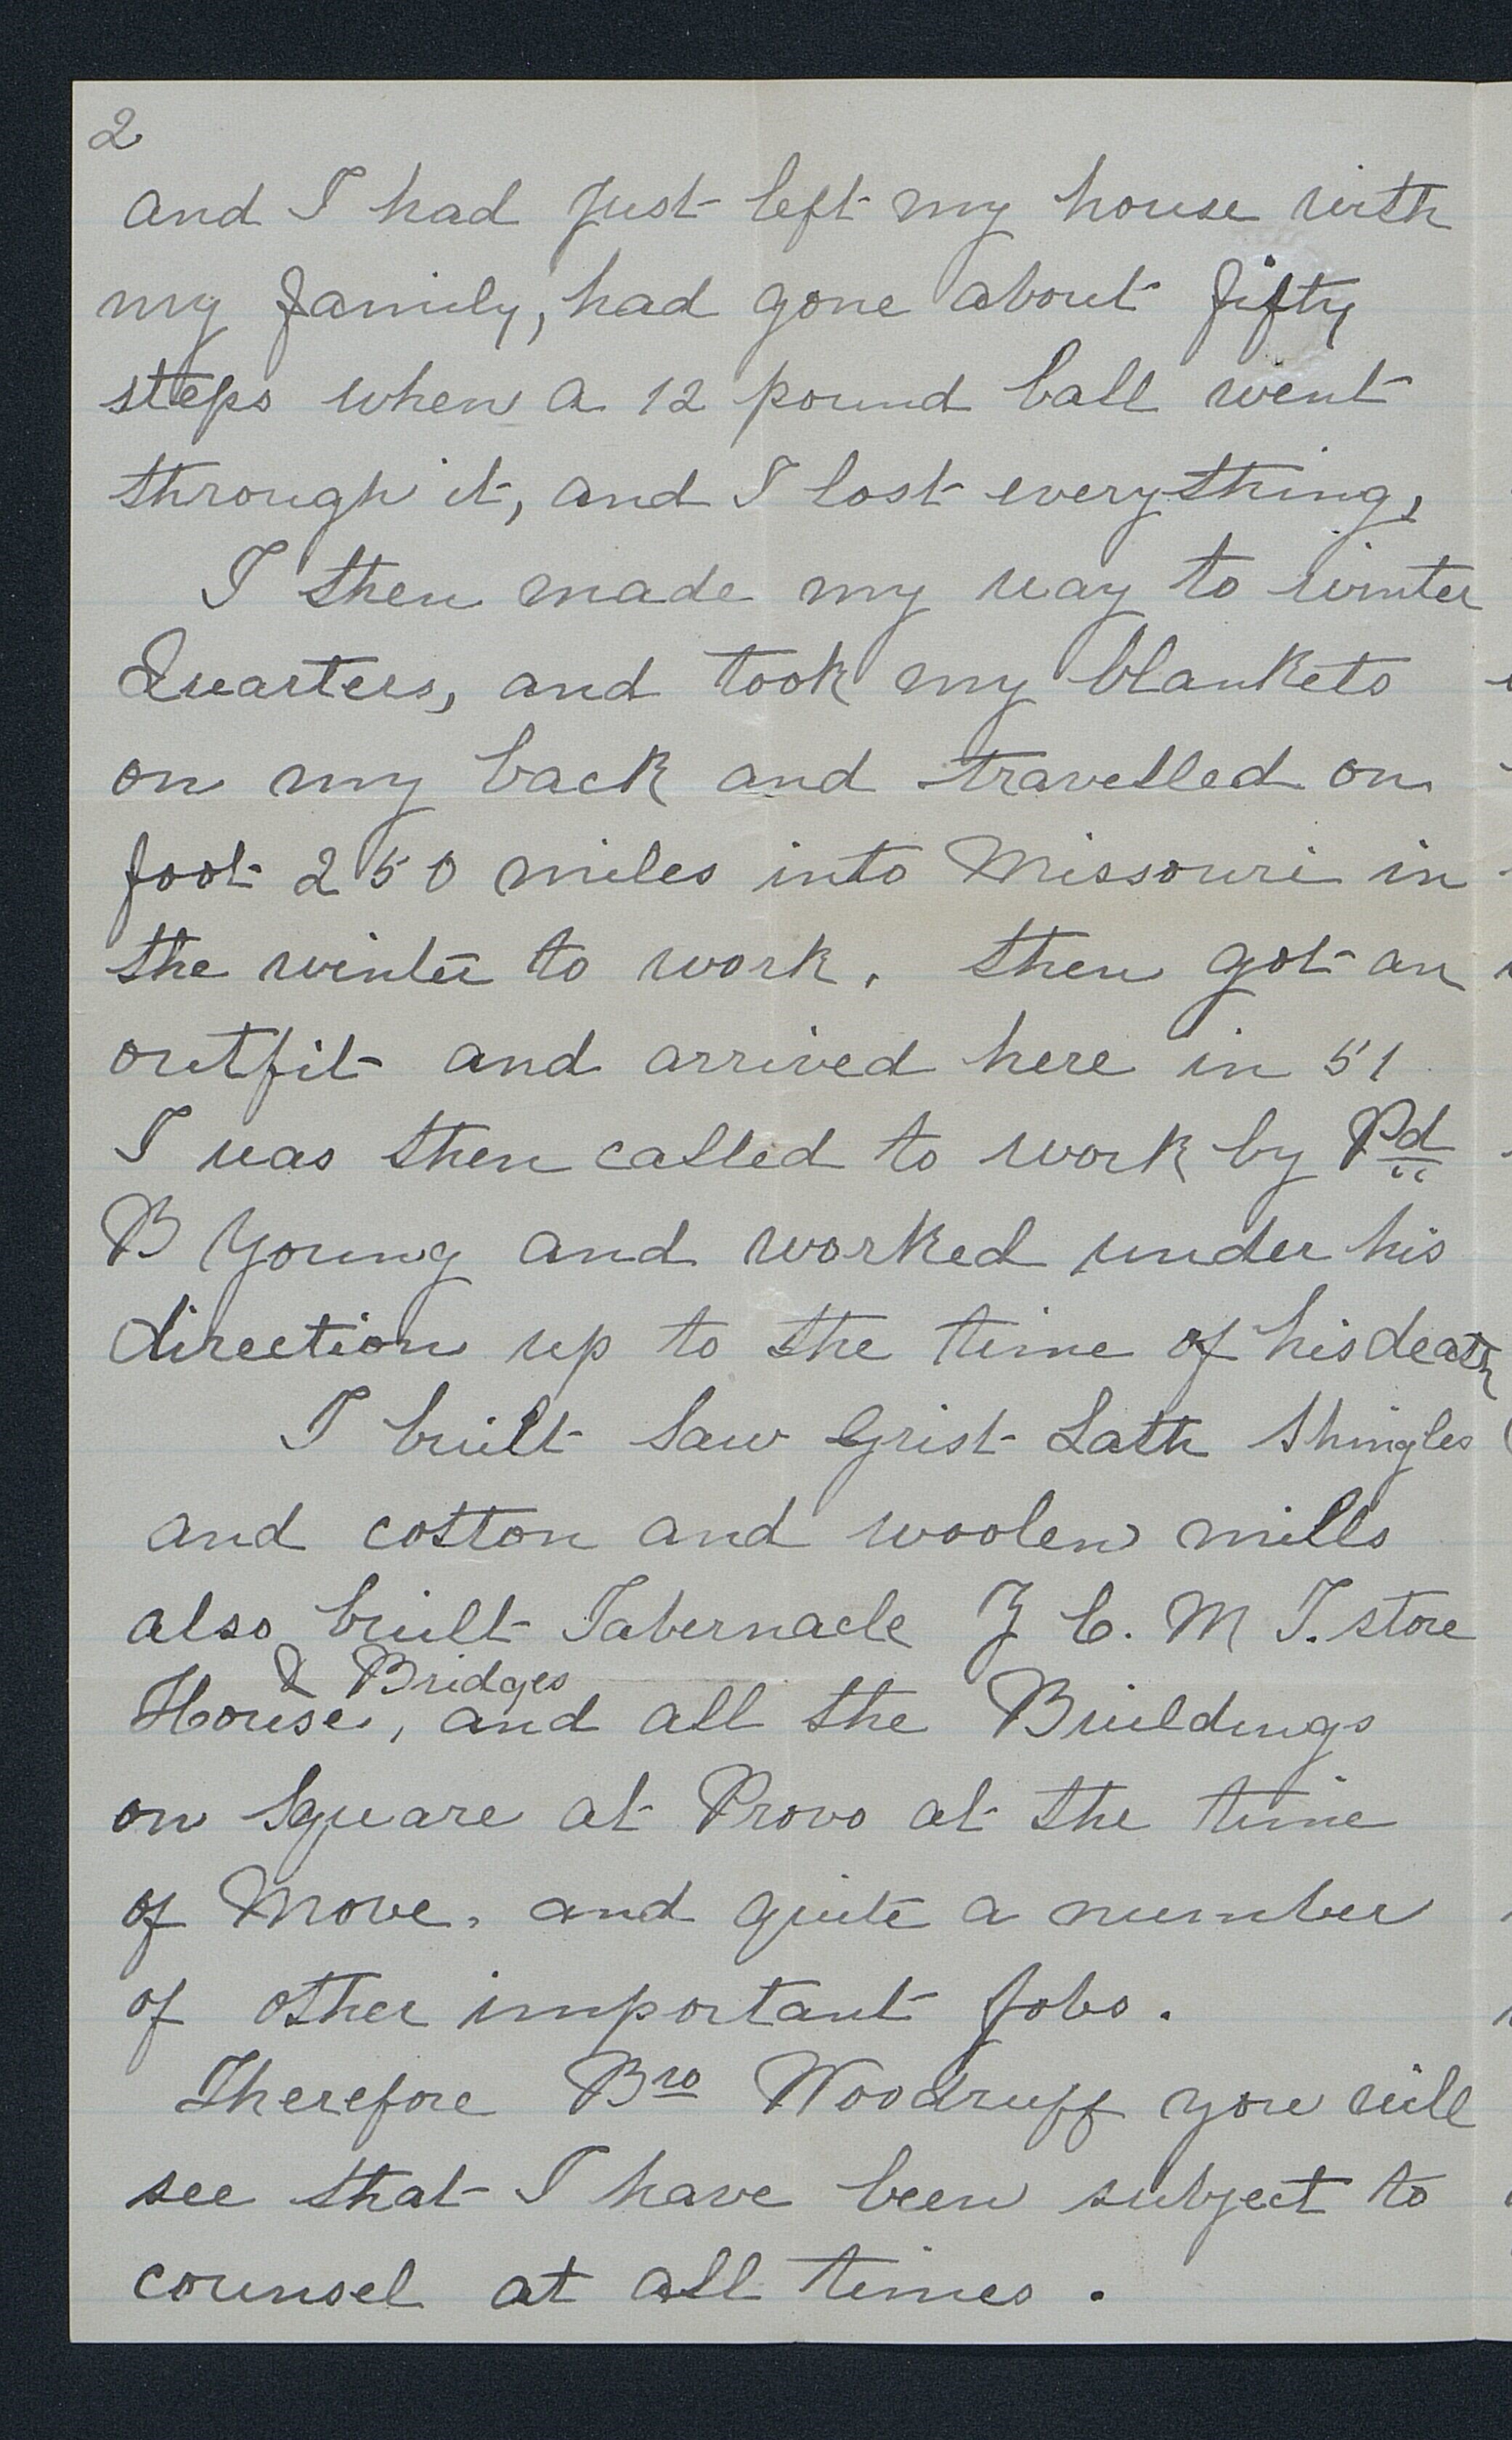 2
and I had just left my house with
my family, had gone about fifty
steps when a 12 pound ball went
through it, and I lost everything,
I then made my way to winter
Quarters, and took my blankets
on my back and travelled on
foot 250 miles into Missouri in
the winter to work, then got an
outfit and arrived here in 51
I was then called to work by Pd
B Young and worked under his
direction up to the time of his death
I built Saw Grist Lath Shingles
and cotton and woolen mills
also built Tabernacle Z C. M I. store
& Bridges
House, and all the Buildings
on Square at Provo at the time
of Move, and quite a number
of other important Jobs.
Therefore Bro Woodruff you will
see that I have been subject to
counsel at all times.